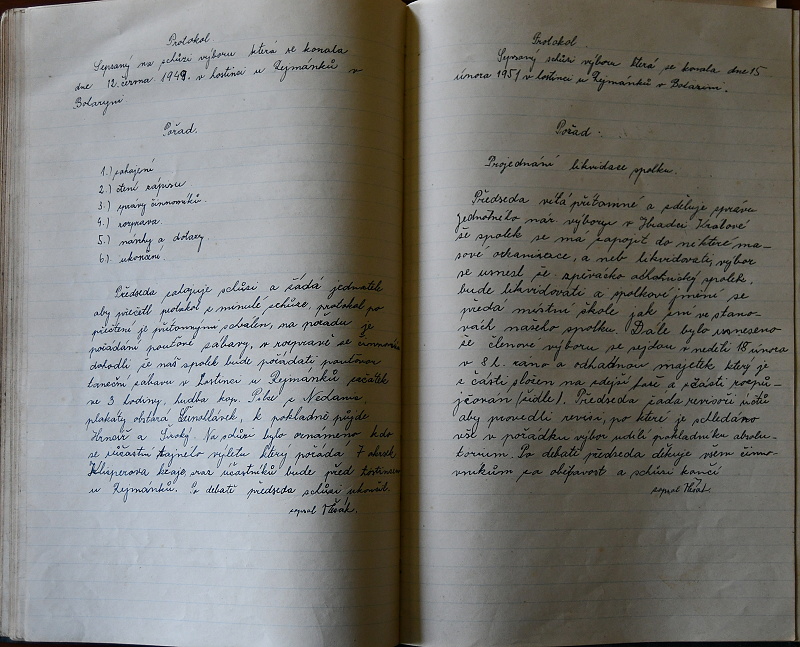 Protokol.
Sepsaný na schůzi výboru která se konala
dne 12. června 1949. v hostinci u Rejmánků v
Bolaryni.
Pořad.
1.) zahájení
2.) čtení zápisu
3.) zprávy činovníků.
4.) rozprava.
5.) návrhy a dotazy.
6.) ukončení.
Předseda zahajuje schůzi a žádá jednatele
aby přečetl protokol z minulé schůze, protokol po
přečtení je přítomnými schválen, na pořadu je
pořádání pouťové zábavy, v rozpravě se
dohodli že náš spolek bude pořádati pouťovou
taneční zábavu v hostinci u Rejmánků začátek
ve 3 hodiny, hudba kap. z
plakáty obstará k pokladně půjde
a Široký. Na schůzi bylo oznámeno kdo
se súčastní tajného výletu který pořádá 7 okrsek
sraz účastníků bude před hostincem
u Rejmánků. Po debatě předseda schůzi ukončil.
zapsal
Protokol
Sepsaný schůzi výboru která se konala dne 15
února 1951 v hostinci u Rejmánků v
Pořad.
Projednání likvidace spolku.
Předseda vítá přítomné a sděluje zprávu
jednotného nár výboru v Hradci Králové
že spolek se má zapojit do některé ma-
sové orkanisace, a neb likvidovati, výbor
se usnesl že zpěvácko spolek,
bude likvidovati a spolkové jmění se
předa místní škole jak zní ve stano-
vách našeho spolku. Dále bylo usneseno
že členové výboru se sejdou v neděli 18 února
v 8 h. ráno a odhadnou majetek který je
z části složen na zdejší faře a z části rozpů-
jčován (židle). Předseda žádá revisoři účtů
aby provedli revisi, po které je shledáno
vše v pořádku výbor udělí pokladníku absolu-
torium. Po debatě předseda děkuje všem činno-
vníkům za obětavost a schůzi končí
zapsal